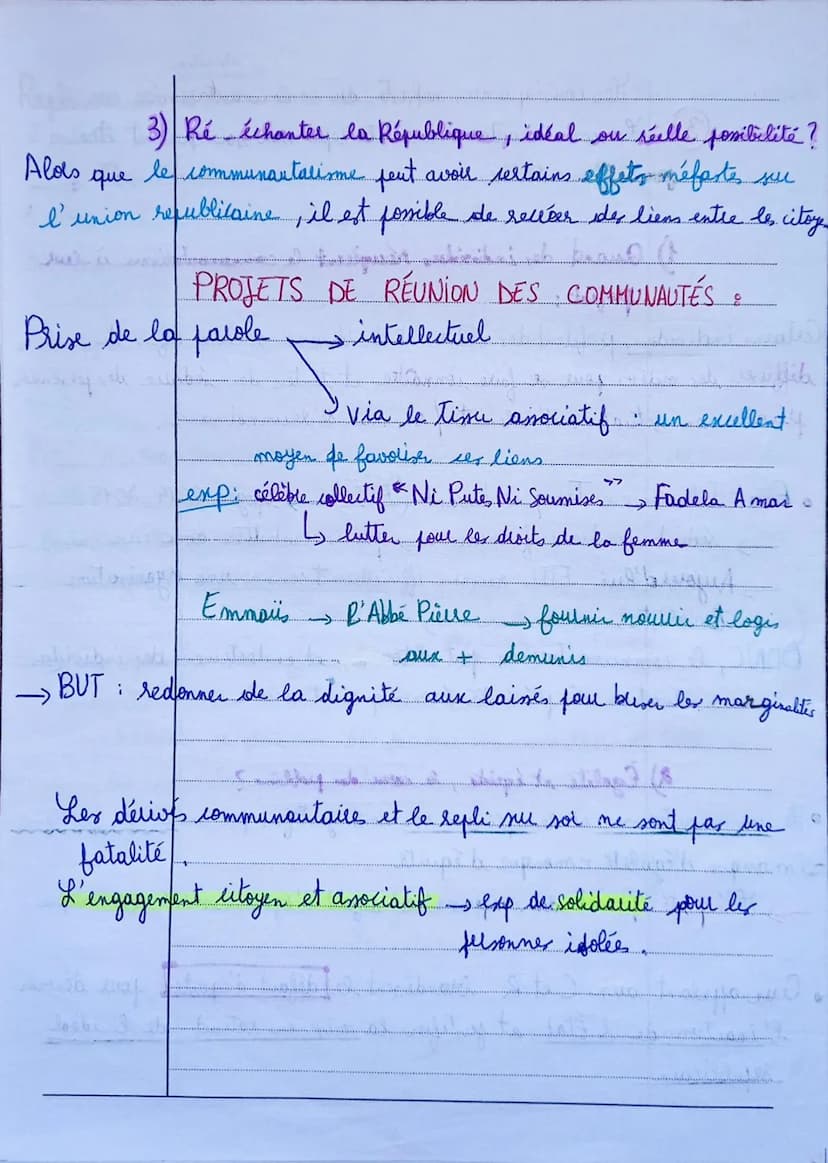 3) Ré-échanter la République, idéal ou réelle possibilité ?
Alors que le communautarisme peut avoir certains effets méfastes sur
l'union republicaine, il est possible de recréer des liens entre les citoye
PROJETS DE RÉUNION DES COMMUNAUTÉS :
Prise de la parole → intellectuel
↘ via le Tissu associatif : un excellent
moyen de favoriser ces liens
exp: célèbre collectif "Ni Putes Ni Soumises" → Fadela Amar
↳ lutter pour les droits de la femme
Emmaüs → L'Abbé Pierre → fournir nourrir et logis
aux + demunis
→ BUT : redonner de la dignité aux laissés pour briser les marginalités
Les dérives communautaires et le repli sur soi ne sont pas une
fatalité.
L'engagement citoyen et associatif → exp de solidarité pour les
personnes isolées.